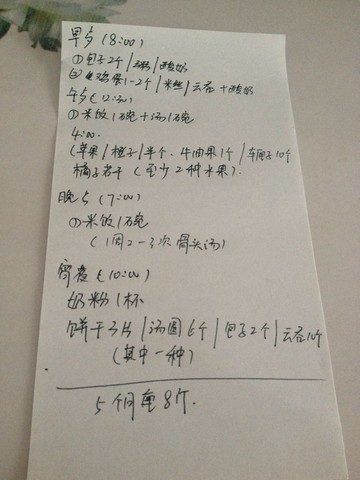 早点(8:00)
①包子2个/粥/酸奶
②鸡蛋1-2个/米丝/云吞+酸奶
午点(12:30)
①米饭1碗+汤1碗
4:00
(苹果/橙子/半个、牛油果1个/车厘子10个
橘子若干(至少2种水果).
晚点(7:00)
①米饭1碗
(1周2-3次骨头汤)
宵夜(10:00)
奶粉1杯
饼干3片/汤圆6个/包子2个/云吞10个
(其中一种)
5个月重8斤.